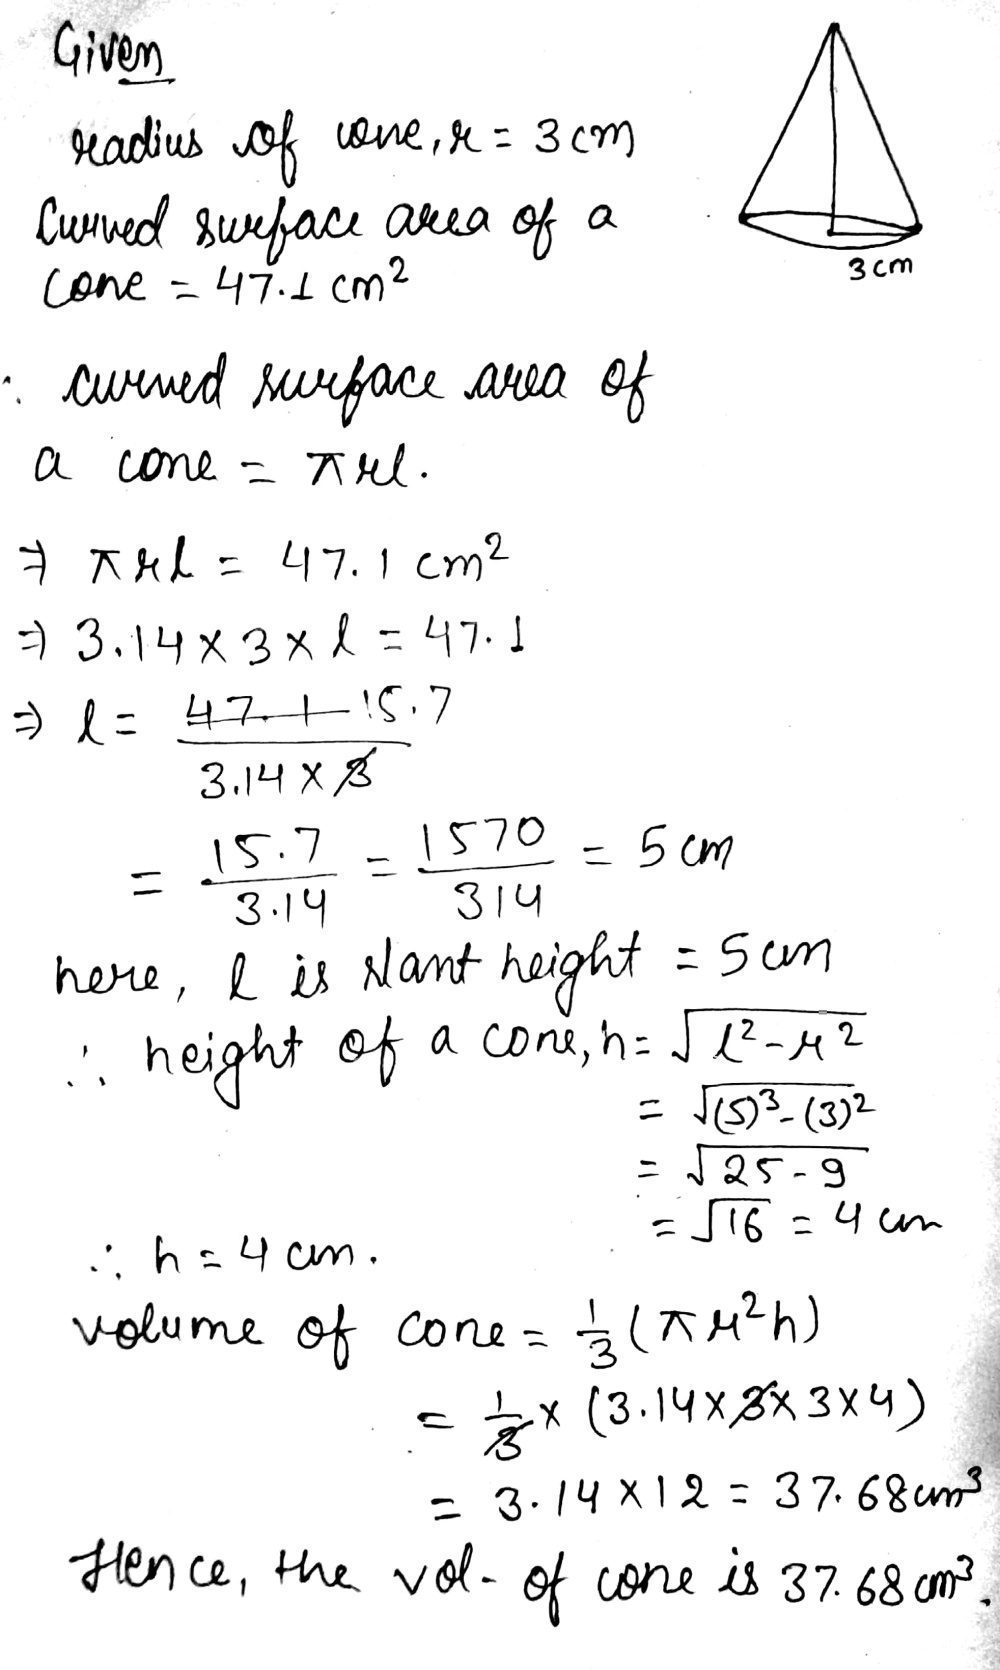 Given
radius of cone, r = 3 cm
Curved surface area of a
cone = 47.1 cm²
3 cm
∴ curved surface area of
a cone = πrl.
⇒ πrl = 47.1 cm²
⇒ 3.14 × 3 × l = 47.1
⇒ l = 47.1 15.7 / 3.14 × 3
= 15.7/3.14 = 1570/314 = 5 cm
here, l is slant height = 5 cm
∴ height of a cone, h = √(l² - r²)
= √((5)³ - (3)²)
= √(25 - 9)
= √16 = 4 cm
∴ h = 4 cm.
volume of cone = 1/3 (πr²h)
= 1/3 × (3.14 × 3 × 3 × 4)
= 3.14 × 12 = 37.68 cm³
Hence, the vol- of cone is 37.68 cm³.